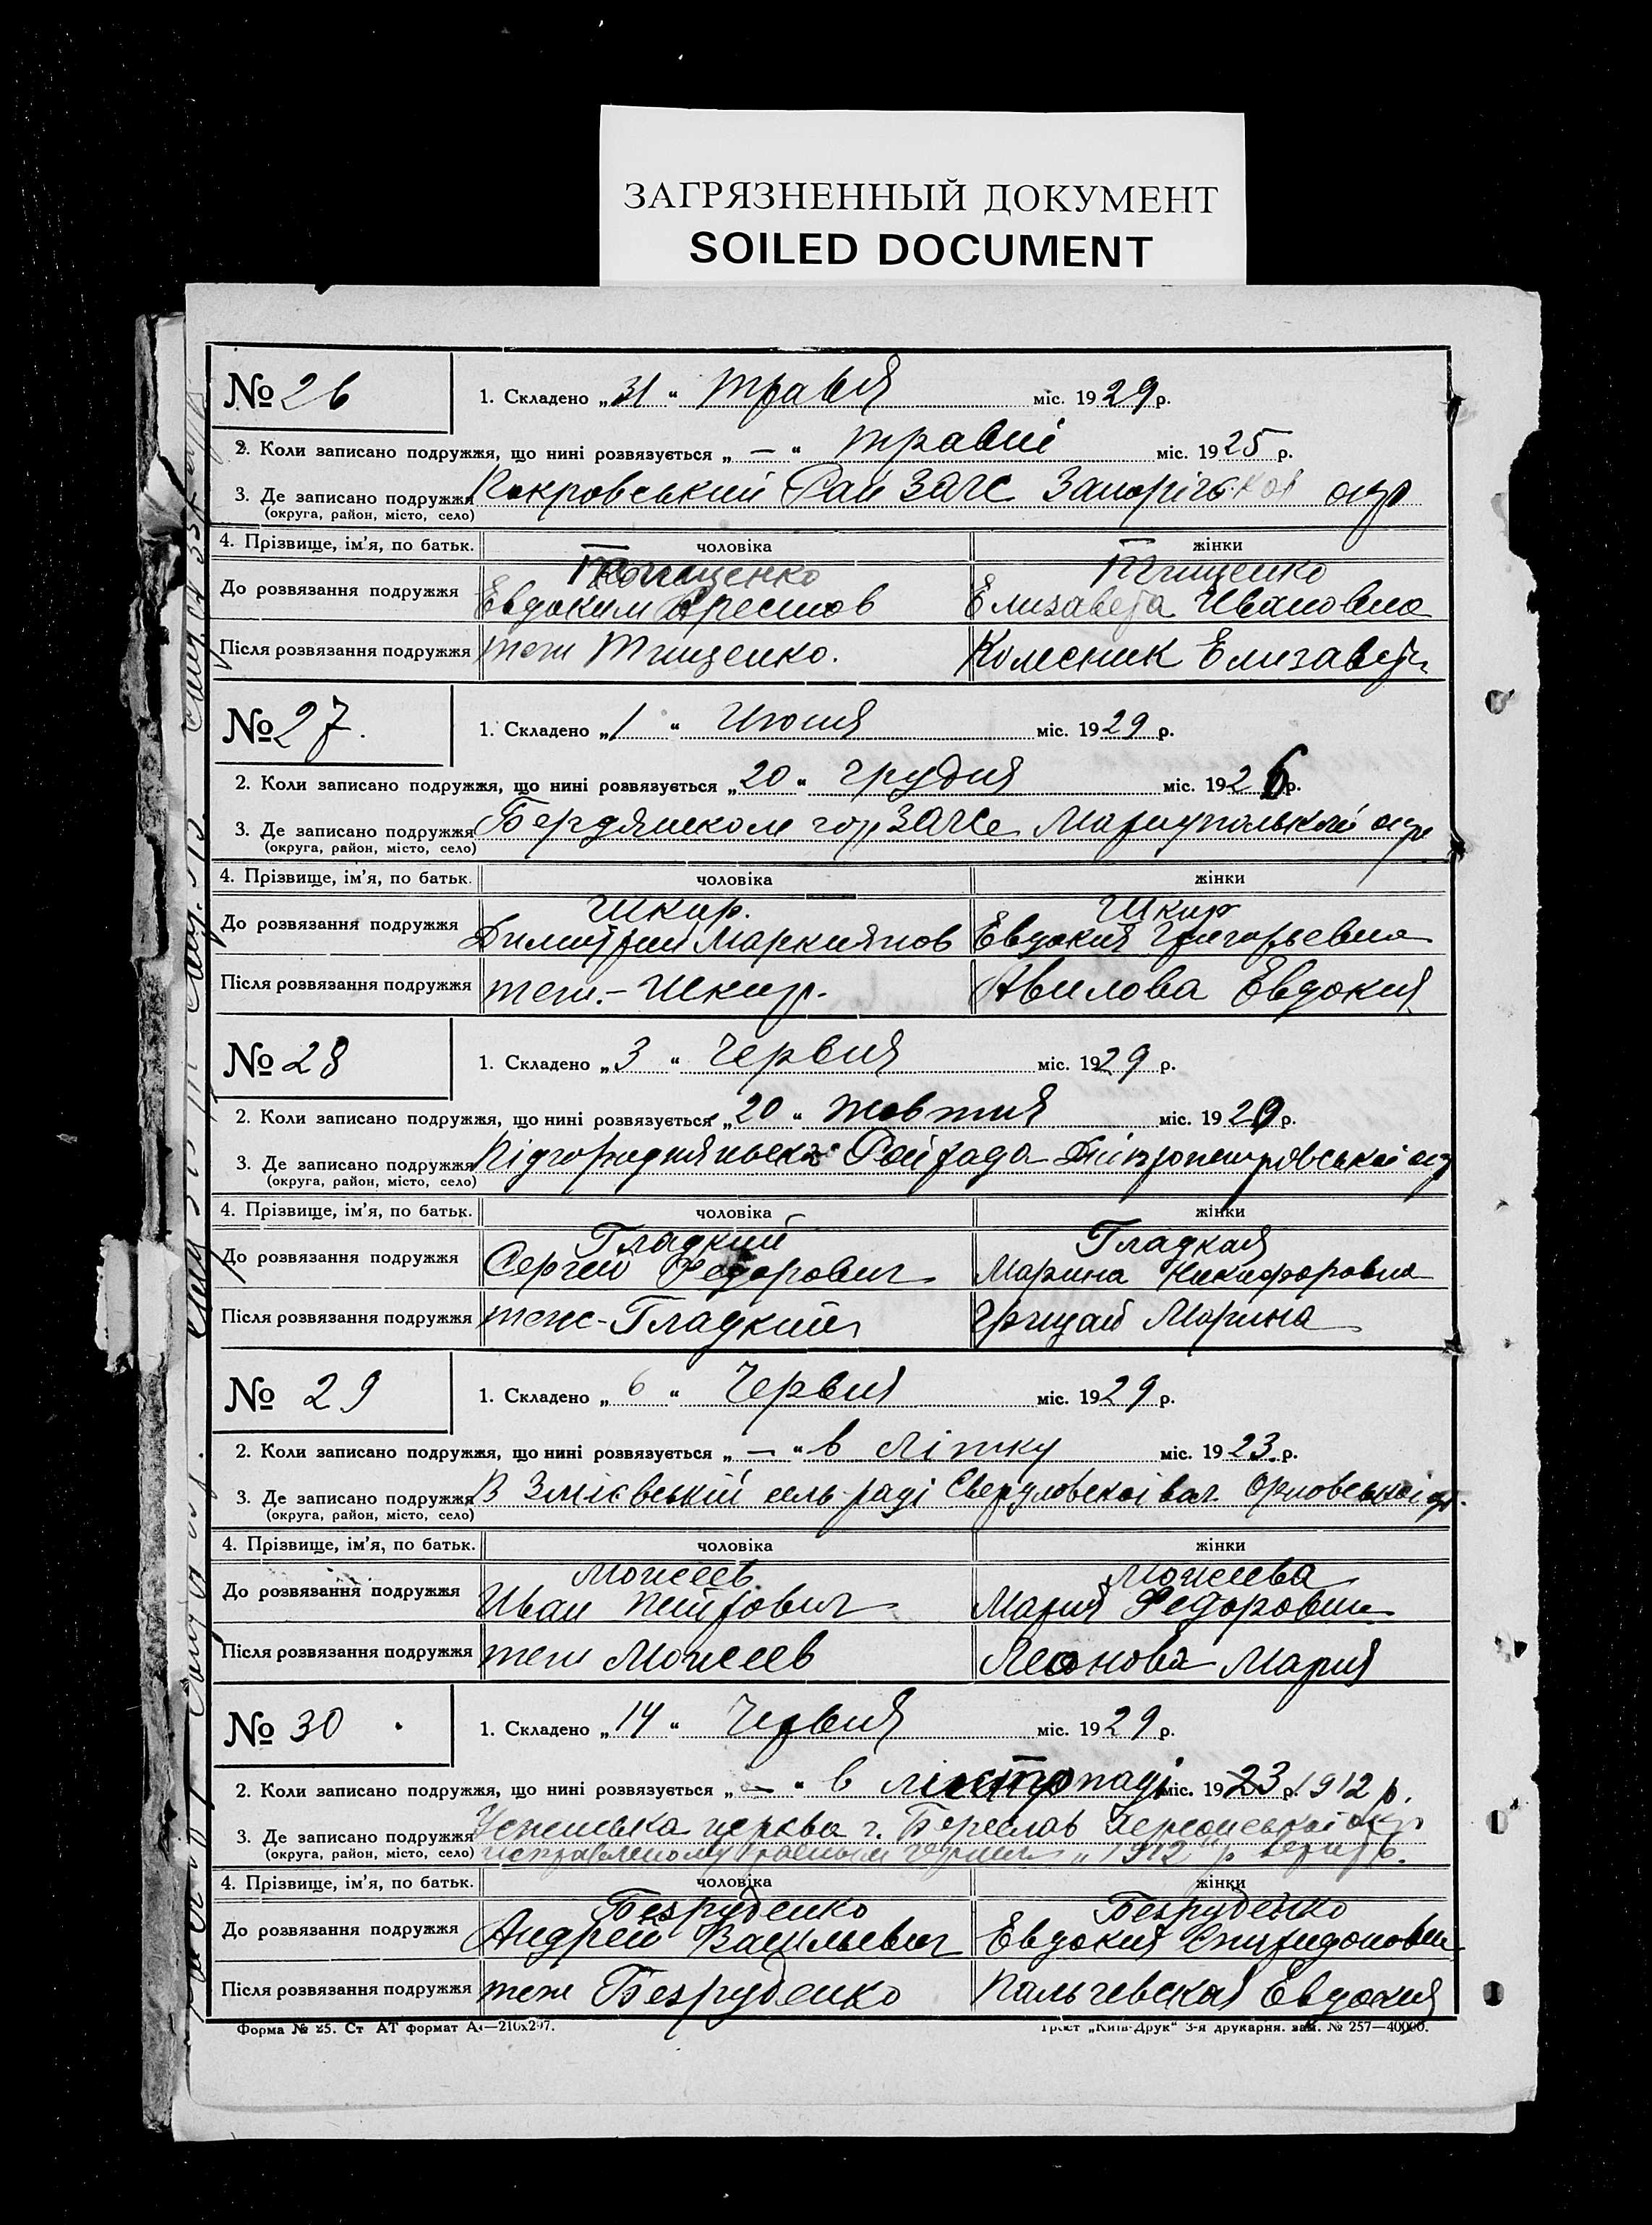 ЗАГРЯЗНЕННЫЙ ДОКУМЕНТ
SOILED DOCUMENT
№ 26
1. Складено „31“ травня міс. 1929 р.
2. Коли записано подружжя, що нині розвязується „—“ травні міс. 1925 р.
3. Де записано подружжя Покровський Рай ЗАГС Запорізької окр
(округа, район, місто, село)
4. Прізвище, ім'я, по батьк. чоловіка жінки
Тищенко Тищенко
До розвязання подружжя Евдоким Арестов Елизавета Ивановна
Після розвязання подружжя теж Тищенко. Колесник Елизавета
№ 27.
1. Складено „1“ Июня міс. 1929 р.
2. Коли записано подружжя, що нині розвязується „20“ грудня міс. 1926 р.
3. Де записано подружжя Бердянском гор ЗАГСе Мариупольской окр
(округа, район, місто, село)
4. Прізвище, ім'я, по батьк. чоловіка жінки
Шкир. Шкир
До розвязання подружжя Димитрий Маркиянов Евдокия Григорьевна
Після розвязання подружжя теж.- Шкир. Авилова Евдокия
№ 28
1. Складено „3“ Червня міс. 1929 р.
2. Коли записано подружжя, що нині розвязується „20“ жовтня міс. 1920 р.
3. Де записано подружжя Дніпропетровської окр
(округа, район, місто, село)
4. Прізвище, ім'я, по батьк. чоловіка жінки
Гладкий Гладкая
До розвязання подружжя Сергей Федорович Марина Никифоровна
Після розвязання подружжя теж-Гладкий Грицай Марина
№ 29
1. Складено „6“ Червня міс. 1929 р.
2. Коли записано подружжя, що нині розвязується „—“ в літку міс. 1923. р.
3. Де записано подружжя В Зміевській сель-раді Свердловскоі вол. Орловськоі
(округа, район, місто, село)
4. Прізвище, ім'я, по батьк. чоловіка жінки
Можеев Можеева
До розвязання подружжя Иван Петрович Мария Федоровна
Після розвязання подружжя теж Можеев Леонова Мария
№ 30
1. Складено „14“ Червня міс. 1929 р.
2. Коли записано подружжя, що нині розвязується „—“ в лістопаді міс. 1923 р. 1912 р.
3. Де записано подружжя Успенська церква г. Береслав Херсонськоі окр
(округа, район, місто, село) исправленому „1912“ р верить.
4. Прізвище, ім'я, по батьк. чоловіка жінки
Безруденко Безруденко
До розвязання подружжя Андрей Васильевич Евдокия Спиридоновна
Після розвязання подружжя теж Безруденко Пальчевская Евдокия
Форма № 25. Ст АТ формат А4—210х297. Трест „Київ-Друк“ 3-я друкарня. зам. № 257—40000.